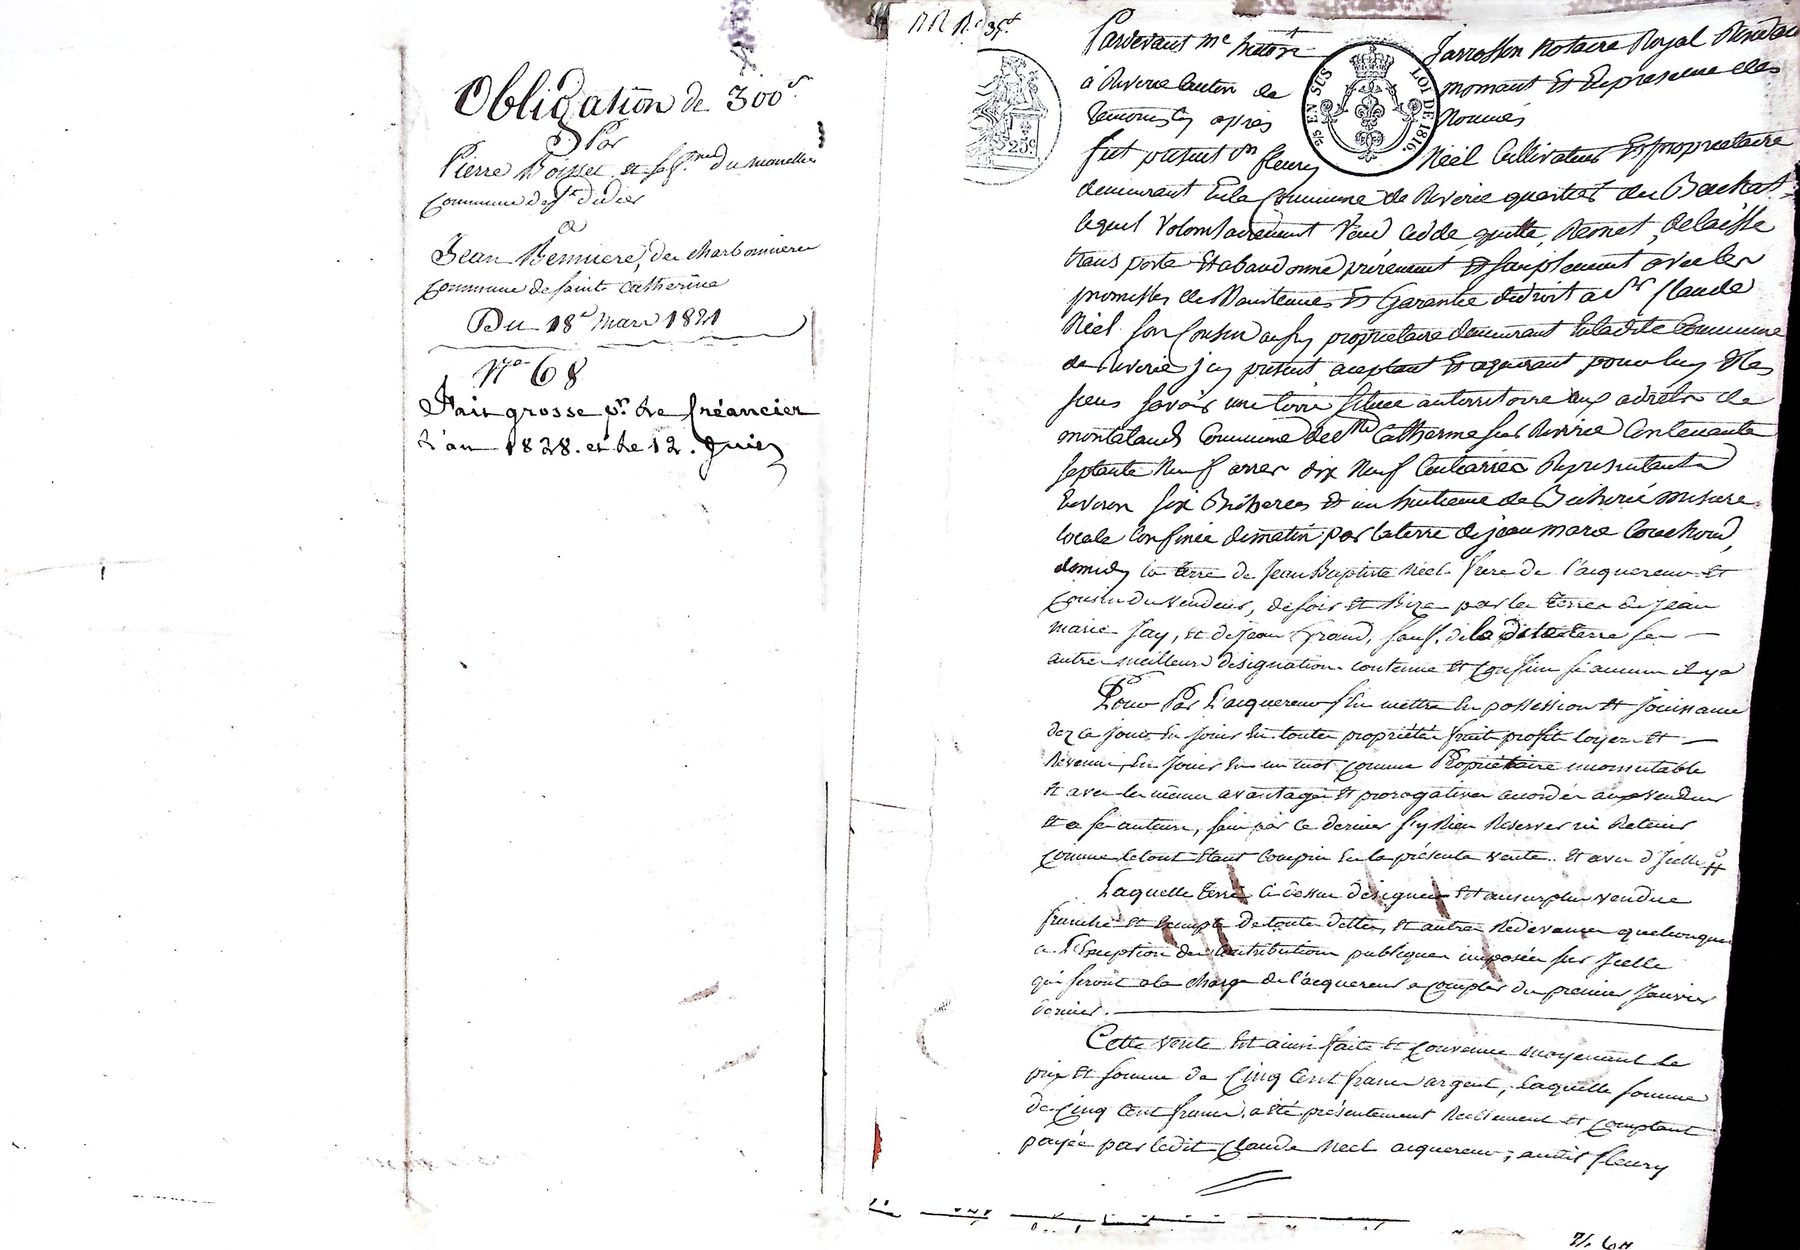 Obligation de 300f
Par
Pierre Boisset et sa fme du
commune de st didier
a
Jean Bennier, de charbonniere
commune de sainte catherine
Du 18e mars 1821
No 68
Fait grosse pr le Créancier
L'an 1828. et le 12. Juin
35c.
25c
2/5 EN SUS
LOI DE 1816.
Pardevant me Jarrosson notaire Royal Residant
à Riverie canton de mornant Et En presence des
temoins cy apres Nommés
fut present sr fleury Néel Cultivateur Et proprietaire
demeurant En la Commune de Riverie quartier du Bachat
lequel Volontairement Vend, cède, quitte, Remet, delaisse
transporte Et abandonne purement Et simplement avec les
promesses de Maintenue Et Garantie de droit a sr Claude
Néel son Cousin aussy proprietaire demeurant En ladite Commune
de Riverie icy présent aceptant Et aquerant pour luy Et les
siens savoir une terre située au territoire aux adrets de
montaland Commune de Ste Catherine sur Riverie Contenante
septante Neuf arres dix Neuf Centiares Representant
Environ six Bicherées Et un huitieme de Bicherée mesure
locale Confinée de matin par la terre de jean marie Couchoud,
de midy la terre de Jean Baptiste Néel frere de l'acquereur Et
Cousin du vendeur, de soir Et Bize par les terres de Jean
marie Jay, Et de Jean Grand, sauf de la dite terre ses
autres meilleurs designation contenue Et Confins si aucun il y a
Pour Par L'acquereur s'en mettre En possession Et Jouissance
dez ce jour, En jouir En toute propriété fruits profits loyers Et
Revenus, En Jouir En un mot comme Propriétaire incommutable
Et avec les mêmes avantages Et prérogatives accordés aux vendeur
Et a ses auteurs, sans par ce dernier s'y Rien Reserver ni Retenir
comme le tout Etant Compris En la présente vente. Et avec d'Icelle
Laquelle terre ci dessus designée Est au surplus vendue
franche Et Exempte de toutes dettes, Et autres Redevances quelconques
a L'Exception des Contributions publiques imposées sur Icelle
qui seront a la charge de l'acquereur a compter du premier Janvier
dernier.
Cette vente Est ainsi faite Et convenue moyennant le
prix Et somme de Cinq Cent francs argent, laquelle somme
de Cinq Cent francs a été présentement Réellement Et comptant
payée par ledit Claude Néel acquereur, audit fleury